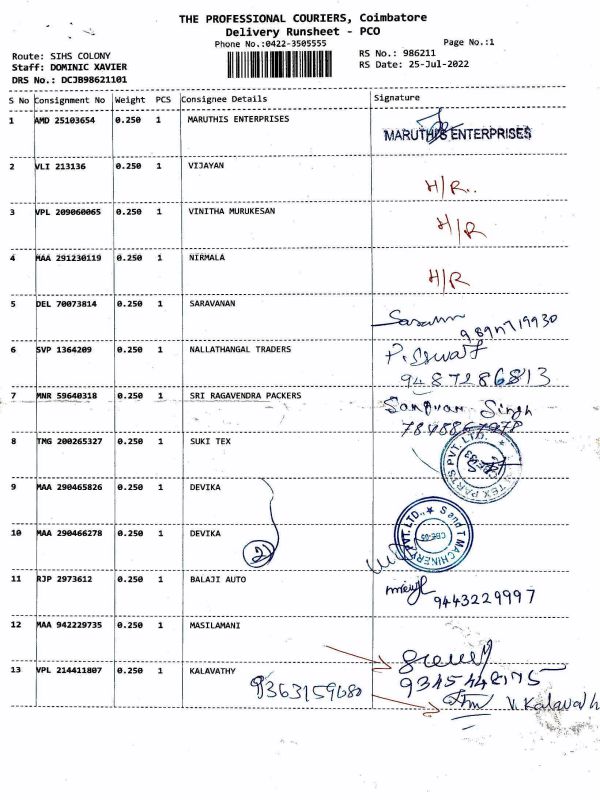 THE PROFESSIONAL COURIERS, Coimbatore
Delivery Runsheet - PCO
Phone No.:0422-3505555
Page No.:1
Route: SIHS COLONY
Staff: DOMINIC XAVIER
DRS No.: DCJB98621101
RS No.: 986211
RS Date: 25-Jul-2022
S No Consignment No Weight PCS Consignee Details Signature
1 AMD 25103654 0.250 1 MARUTHIS ENTERPRISES MARUTHIS ENTERPRISES
2 VLI 213136 0.250 1 VIJAYAN H/R..
3 VPL 209060065 0.250 1 VINITHA MURUKESAN H/R
4 MAA 291230119 0.250 1 NIRMALA H/R
5 DEL 70073814 0.250 1 SARAVANAN
6 SVP 1364209 0.250 1 NALLATHANGAL TRADERS
9487286813
7 MNR 59640318 0.250 1 SRI RAGAVENDRA PACKERS Singh
8 TMG 200265327 0.250 1 SUKI TEX TEX PARTS PVT. LTD.
9 MAA 290465826 0.250 1 DEVIKA
10 MAA 290466278 0.250 1 DEVIKA 2 MACHINERY PVT. LTD.,
11 RJP 2973612 0.250 1 BALAJI AUTO
9443229997
12 MAA 942229735 0.250 1 MASILAMANI
13 VPL 214411807 0.250 1 KALAVATHY
9363159680